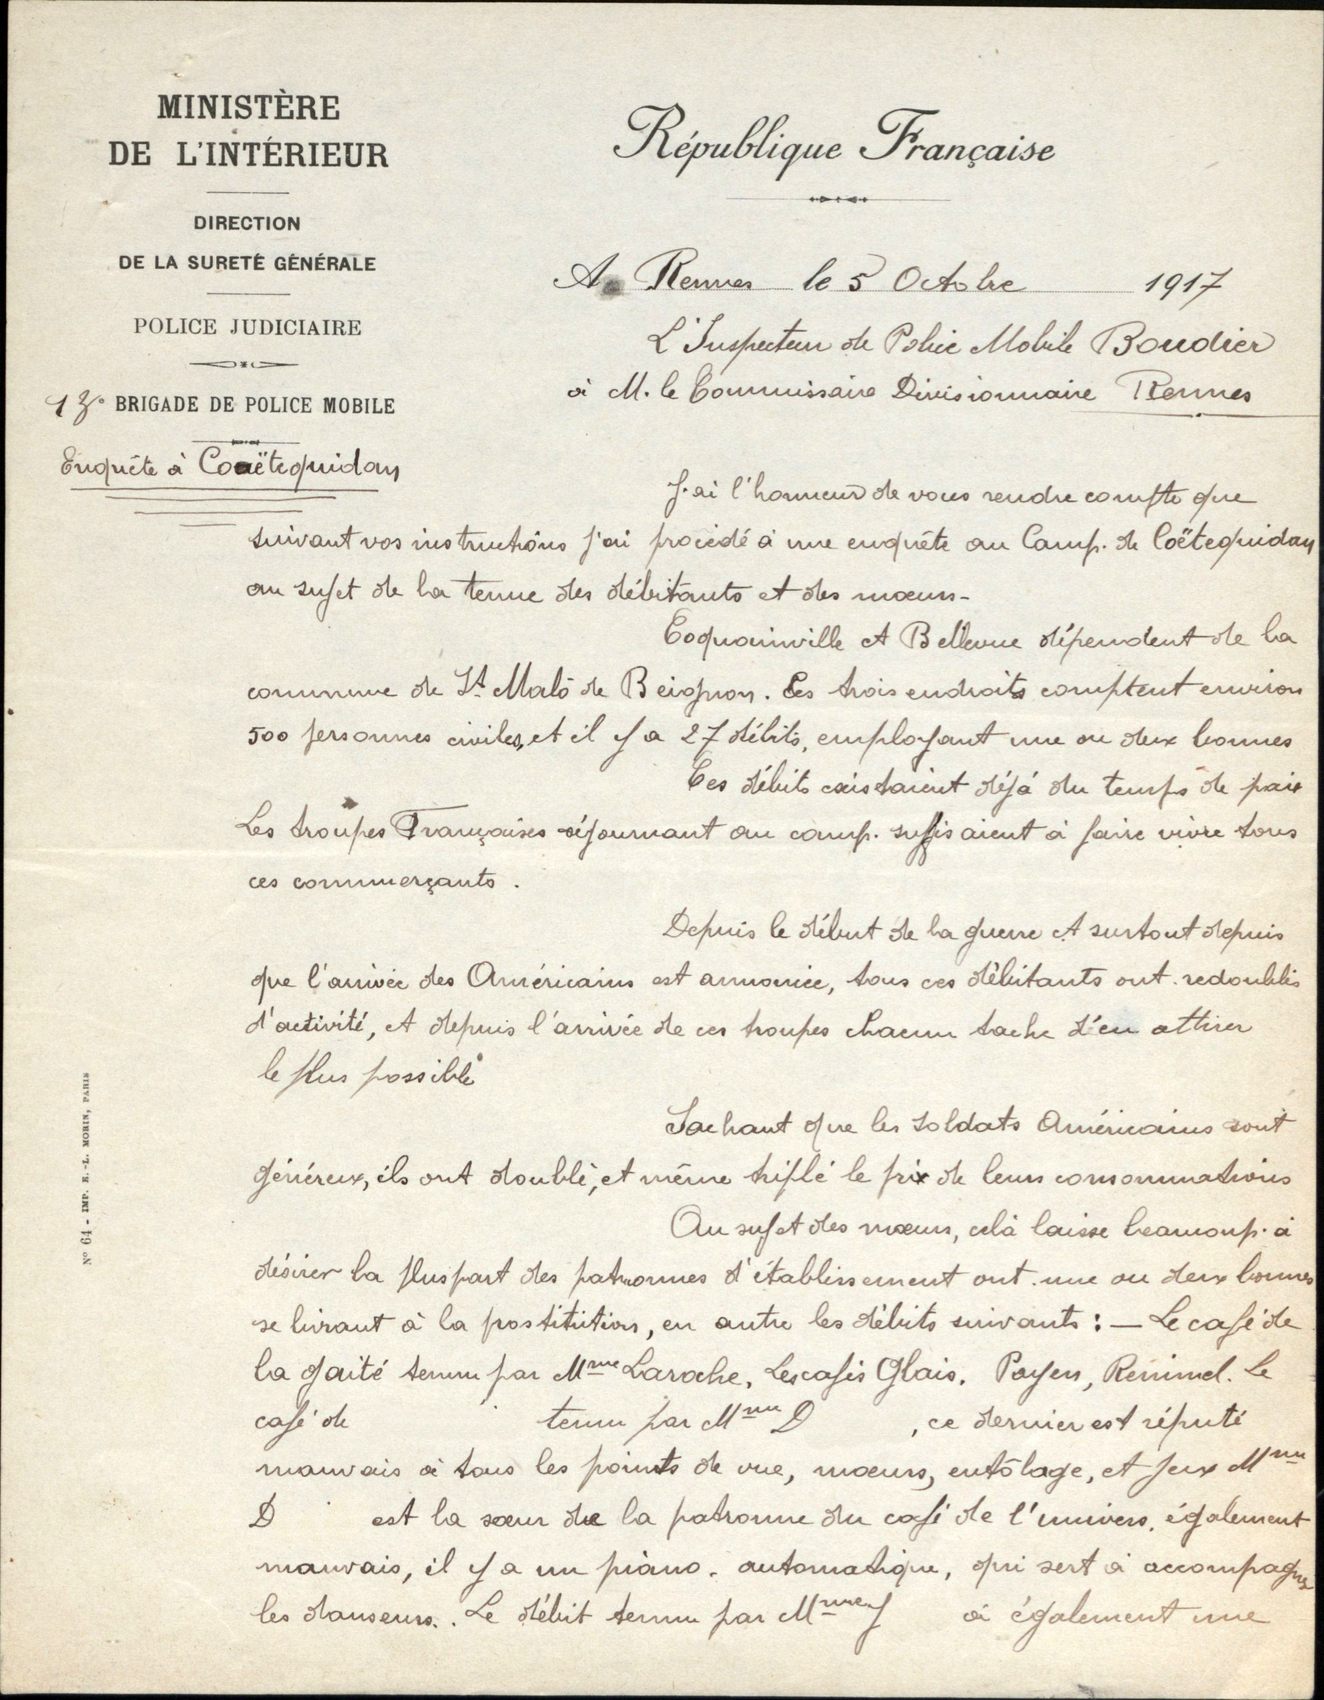 MINISTÈRE
DE L'INTÉRIEUR
DIRECTION
DE LA SURETÉ GÉNÉRALE
POLICE JUDICIAIRE
13e BRIGADE DE POLICE MOBILE
Enquête à Coaëtquidan
République Française
A Rennes le 5 Octobre 1917
L'Inspecteur de Police Mobile Boudier
à M. le Commissaire Divisionnaire Rennes
J'ai l'honneur de vous rendre compte que
suivant vos instructions j'ai procédé à une enquête au Camp. de Coëtequidan
au sujet de la tenue des débitants et des mœurs-
Coquainville et Bellevue dépendent de la
commune de St Malo de Beignon. Ces trois endroits comptent environ
500 personnes civiles, et il y a 27 débits, employant une ou deux bonnes
Ces débits existaient déjà du temps de paix
Les troupes Françaises séjournant au camp. suffisaient à faire vivre tous
ces commerçants.
Depuis le début de la guerre et surtout depuis
que l'arrivée des Américains est annoncée, tous ces débitants ont redoublés
d'activité, et depuis l'arrivée de ces troupes chacun tache d'en attirer
le plus possible
Sachant que les soldats Américains sont
généreux, ils ont doublé, et même triplé le prix de leurs consommations
Au sujet des mœurs, celà laisse beaucoup à
désirer la pluspart des patronnes d'établissement ont une ou deux bonnes
se livrant à la postitution, en autre les débits suivants : — Le café de
la gaité tenu par Mme Laroche, Les cafés Glais. Payen, Renimel. Le
café de tenu par Mme D , ce dernier est réputé
mauvais à tous les points de vue, mœurs, entôlage, et jeux Mme
D est la sœur de la patronne du café de l'univers. également
mauvais, il y a un piano. automatique, qui sert à accompagner
les danseurs. Le débit tenu par Mme J à également une
No 64 - IMP. E.-L. MORIN, PARIS